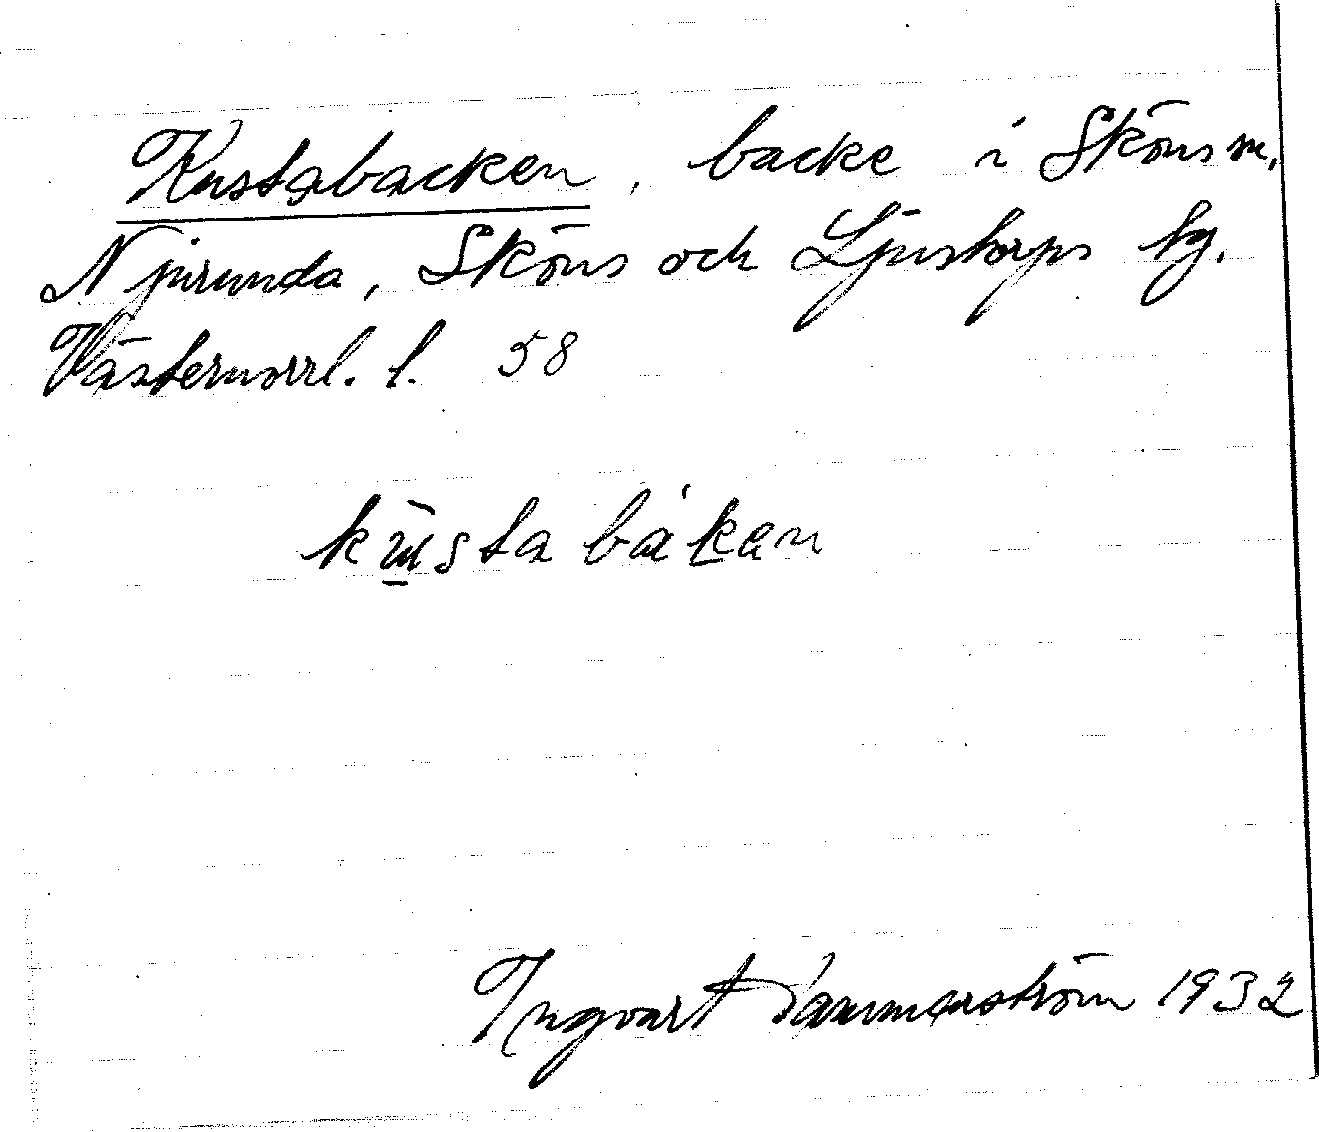 Kustabacken, backe i Sköns sn,
Njurunda, Sköns och Ljustorps tg.
Västernorrl. l. 58
kusta bakan
Ingvart Hammarström 1932